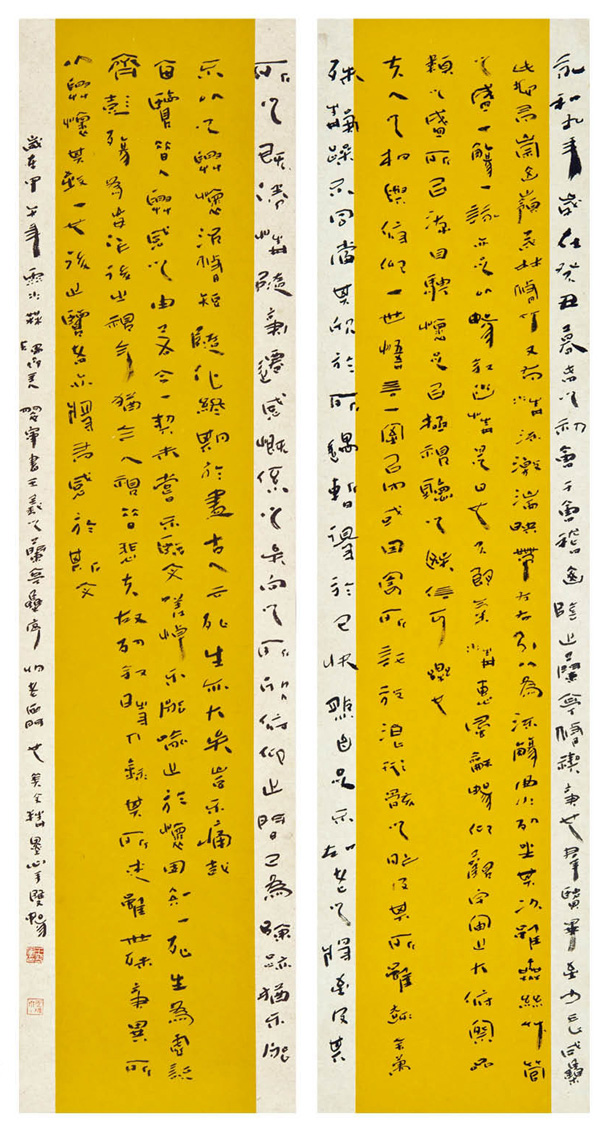 永和九年歲在癸丑暮春之初會于會稽山陰之蘭亭修禊事也群賢畢至少長咸集
此地有崇山峻嶺茂林修竹又有清流激湍映帶左右引以為流觴曲水列坐其次雖無絲竹管
之盛一觴一詠亦足以暢敘幽情是日也天朗氣清惠風和暢仰觀宇宙之大俯察品
類之盛所以游目騁懷足以極視聽之娛信可樂也
夫人之相與俯仰一世悟言一室以內或因寄所託放浪形骸之雖趣舍萬
殊靜躁不同當其欣於所遇暫得於己快然自足不知老之將至及其
所之既倦情隨事遷感慨係之矣向之所欣俯仰之間已為陳跡猶不能
不以之興懷況修短隨化終期於盡古人云死生亦大矣豈不痛哉
每覽昔人興感之由若合一契未嘗不臨文嗟悼不能喻之於懷固知一死生為虛誕
齊彭殤為妄作後之視今猶今人視昔悲夫故列敘時人錄其所述雖世殊事異所
以興懷其致一也後之覽者亦將有感於斯文
歲在甲午年書王羲之蘭亭集序